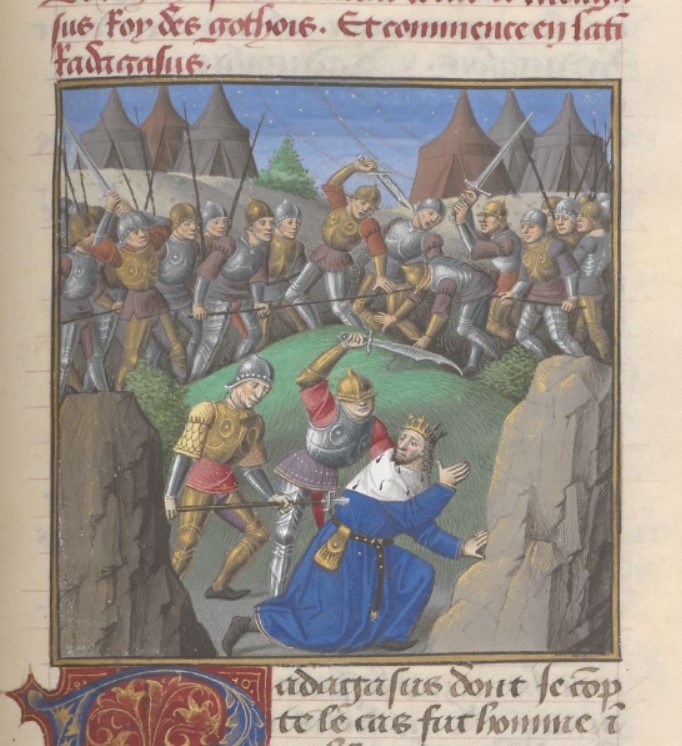 sus Roy des gothois. Et commence en lati
Radagasus.
Radagasus dont je cop
te le cas fut homme i